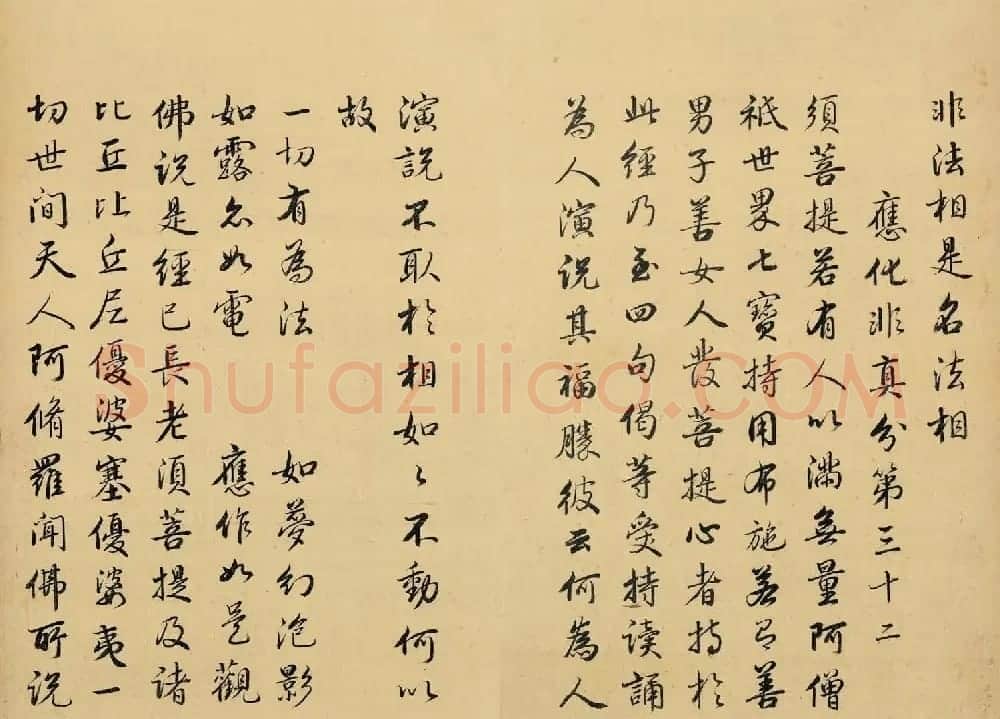 非法相是名法相
應化非真分第三十二
須菩提若有人以滿無量阿僧
祇世界七寶持用布施若有善
男子善女人發菩提心者持於
此經乃至四句偈等受持读誦
為人演说其福勝彼云何為人
演說不取於相如々不動何以
故
一切有為法 如夢幻泡影
如露亦如電 應作如是觀
佛说是經已長老須菩提及諸
比丘比丘尼優婆塞優婆夷一
切世間天人阿脩羅闻佛所说
Shufaziliao.COM